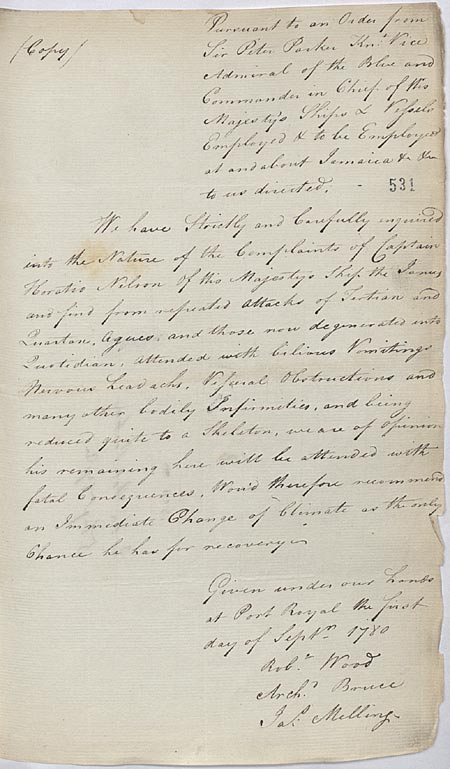 Pursuant to an Order from
(Copy)
Sir Peter Parker Knt. Vice
Admiral of the Blue and
Commander in Chief of His
Majesty's Ships & Vessels
Employed & to be Employed
at and about Jamaica &c &ca
to us directed, - 531
We have Strictly and Carefully enquired
into the Nature of the Complaints of Captain
Horatio Nelson of His Majesty's Ship the Janus
and find from repeated attacks of Tertian and
Quartan, Agues, and those now degenerated into
Quotidian, attended with bilious Vomitings
Nervous headachs, Visceral Obstructions and
many other bodily Infirmities, and being
reduced quite to a Skeleton, we are of opinion
his remaining here will be attended with
fatal Consequences, Wou'd therefore recommend
an Immediate Change of Climate as the only
Chance he has for recovery.
Given under our hands
at Port Royal the first
day of Septr. 1780
Robt. Wood
Archd. Bruce
Jas. Melling